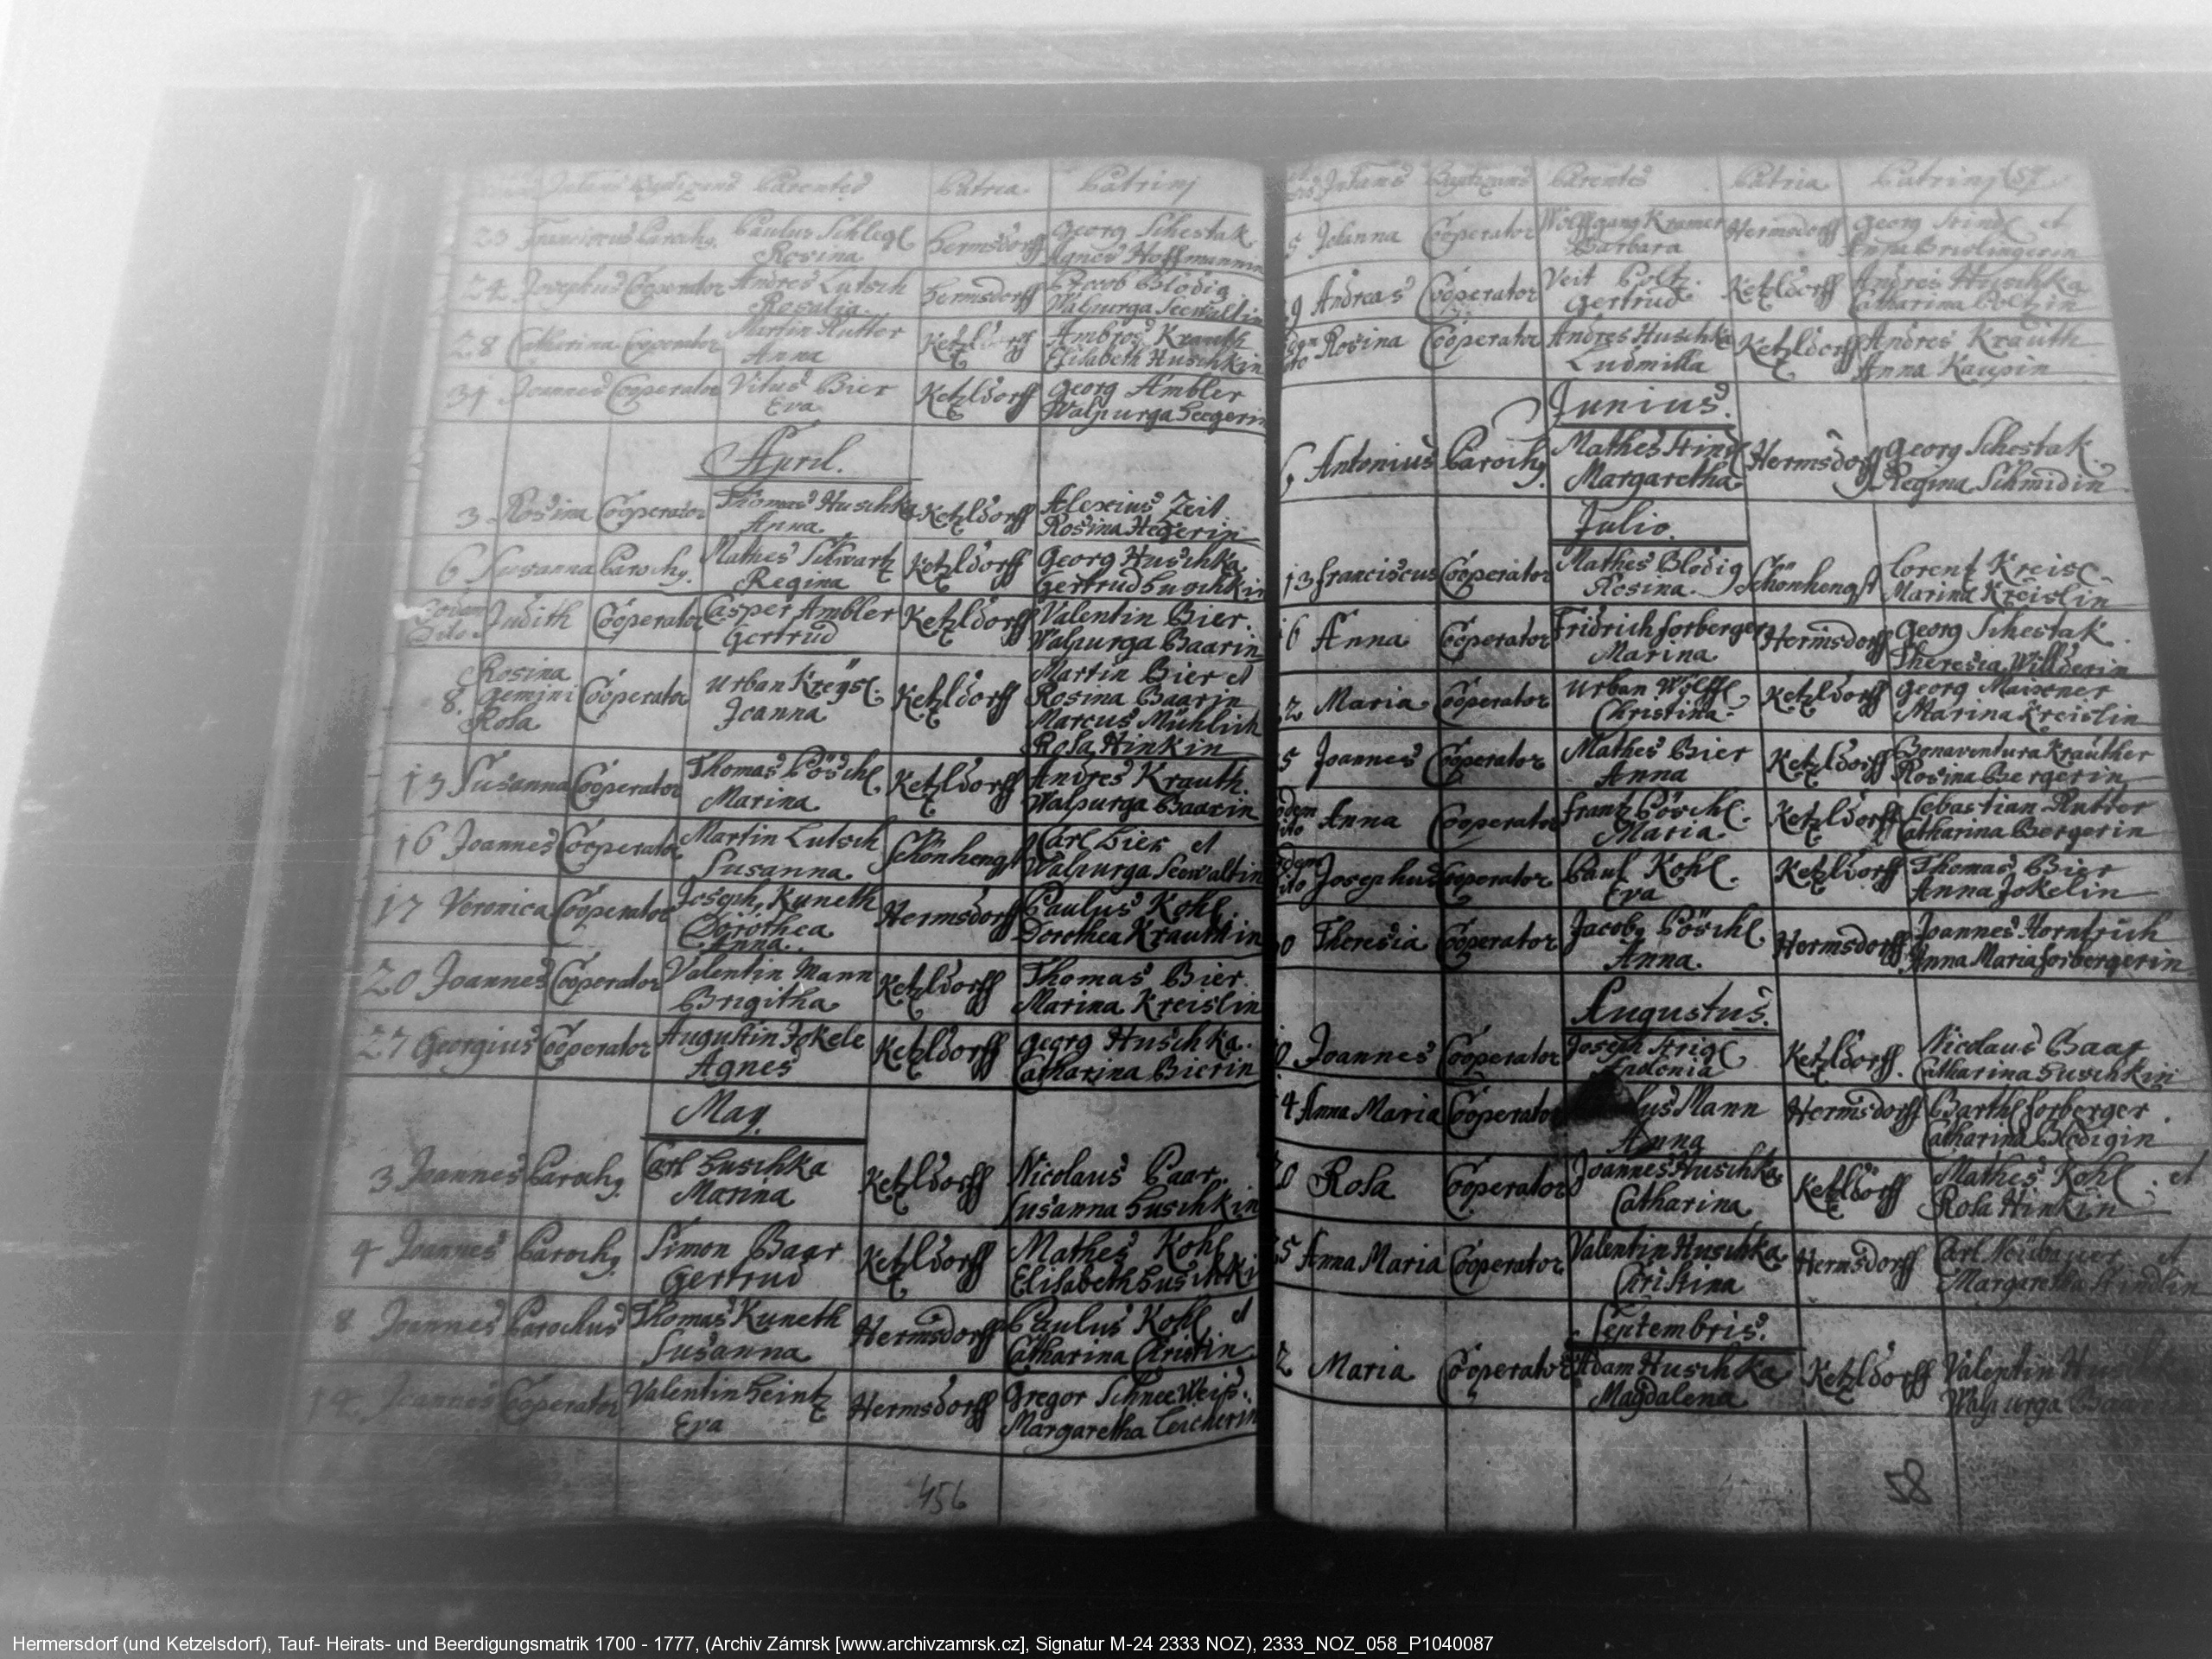 Infans Baptizans Parentes Patria Patrinj
23 Franciscus Parochg. Paulus Schlegl Hermsdorff Georg Schestak
Rosina Agnes Hoffmannin
24 Josephus Cooperator Andres Lutsch Hermsdorff Jacob Blodig
Rosalia. Walpurga Seewaltin
28 Catharina Cooperator Martin Rutter Ketzldorff Ambros Krauth
Anna Elisabeth Huschkin
31 Joannes Cooperator Vitus Bier Ketzldorff Georg Ambler
Eva Walpurga Heegerin
April.
3 Rosina Cooperator Thomas Huschka Ketzldorff Alexius Zeit
Anna. Rosina Hegerin
6 Susanna Parochg. Mathes Schwartz Ketzldorff Georg Huschka
Regina Gertrud Huschkin
Eodem
Dito Judith Cooperator Casper Ambler Ketzldorff Valentin Bier.
Gertrud Walpurga Baarin
Rosina Martin Bier et
8. Gemini Cooperator Urban Kreÿsl. Ketzldorff Rosina Baarin
Rosa Joanna Marcus Mühlich
Rosa Hinkin
13 Susanna Cooperator Thomas Pöschl. Ketzldorff Andres Krauth.
Marina Walpurga Baarin
16 Joannes Cooperator Martin Lutsch Schönhengst Carl Bier et
Susanna. Walpurga Seewaltin
17 Veronica Cooperator Joseph Kuneth Hermsdorff Paulus Kohl.
Dorothea Dorothea Krauthin
Anna.
20 Joannes Cooperator Valentin Mann Ketzldorff Thomas Bier
Brigitha Marina Kreislin
27 Georgius Cooperator Augustin Jokele Ketzldorff Georg Huschka.
Agnes Catharina Bierin
May.
3 Joannes Parochg. Carl Huschka Ketzldorff Nicolaus Paar.
Marina Susanna Huschkin
4 Joannes Parochg. Simon Baar Ketzldorff Mathes Kohl
Gertrud Elisabeth Huschki
8 Joannes Parochus Thomas Kuneth Hermsdorff Paulus Kohl et
Susanna Catharina Christin
14 Joannes Cooperator Valentin Heintz Hermsdorff Gregor Schnee Weiss.
Eva Margaretha
456
Infans Baptizans Parentes Patria Patrinj 57
5 Johanna Cooperator Wolffgang Kramer Hermsdorff Georg Strindl et
Barbara Anna Brislingerin
9 Andreas Cooperator Veit Poltz. Ketzldorff Andres Huschka
Gertrud Catharina Poltzin
Rosina Cooperator Andres Huschka Ketzldorff Andres Krauth
Ludmilla Anna Kaupin
Junius.
6 Antonius Parochg. Mathes Strindl Hermsdorff Georg Schestak
Margaretha Regina Schmidin
Julio.
13 Franciscus Cooperator Mathes Blodig Schönhengst Lorentz Kreisl
Rosina. Marina Kreislin
6 Anna Cooperator Fridrich Forberger Hermsdorff Georg Schestak
Marina Theresia Willderin
2 Maria Cooperator Urban Wölffl Ketzldorff Georg Maixner
Christina. Marina Kreislin
5 Joannes Cooperator Mathes Bier Ketzldorff Bonaventura Krauther
Anna Rosina Bergerin
odem
ito Anna Cooperator Frantz Pöschl. Ketzldorff Sebastian Rutter
Maria. Catharina Bergerin
dem
ito Josephus Cooperator Paul Kohl. Ketzldorff Thomas Bier
Eva Anna Jokelin
0 Theresia Cooperator Jacob Pöschl Hermsdorff Joannes Horntrich
Anna. Anna Maria Forbergerin
Augustus.
0 Joannes Cooperator Joseph Strigl Ketzldorff. Nicolaus Baar
Andonia Catharina Huschkin
4 Anna Maria Cooperator lus Mann Hermsdorff Barthl Forberger.
Anna Catharina Blodigin
0 Rosa Cooperator Joannes Huschka Ketzldorff Mathes Kohl. et
Catharina Rosa Hinkin
5 Anna Maria Cooperator Valentin Huschka Hermsdorff Carl Neübauer et
Christina Margaretha Strindlin
Septembris.
2 Maria Cooperator Adam Huschka Ketzldorff Valentin
Magdalena Walpurga
58
Hermersdorf (und Ketzelsdorf), Tauf- Heirats- und Beerdigungsmatrik 1700 - 1777, (Archiv Zámrsk [www.archivzamrsk.cz], Signatur M-24 2333 NOZ), 2333_NOZ_058_P1040087